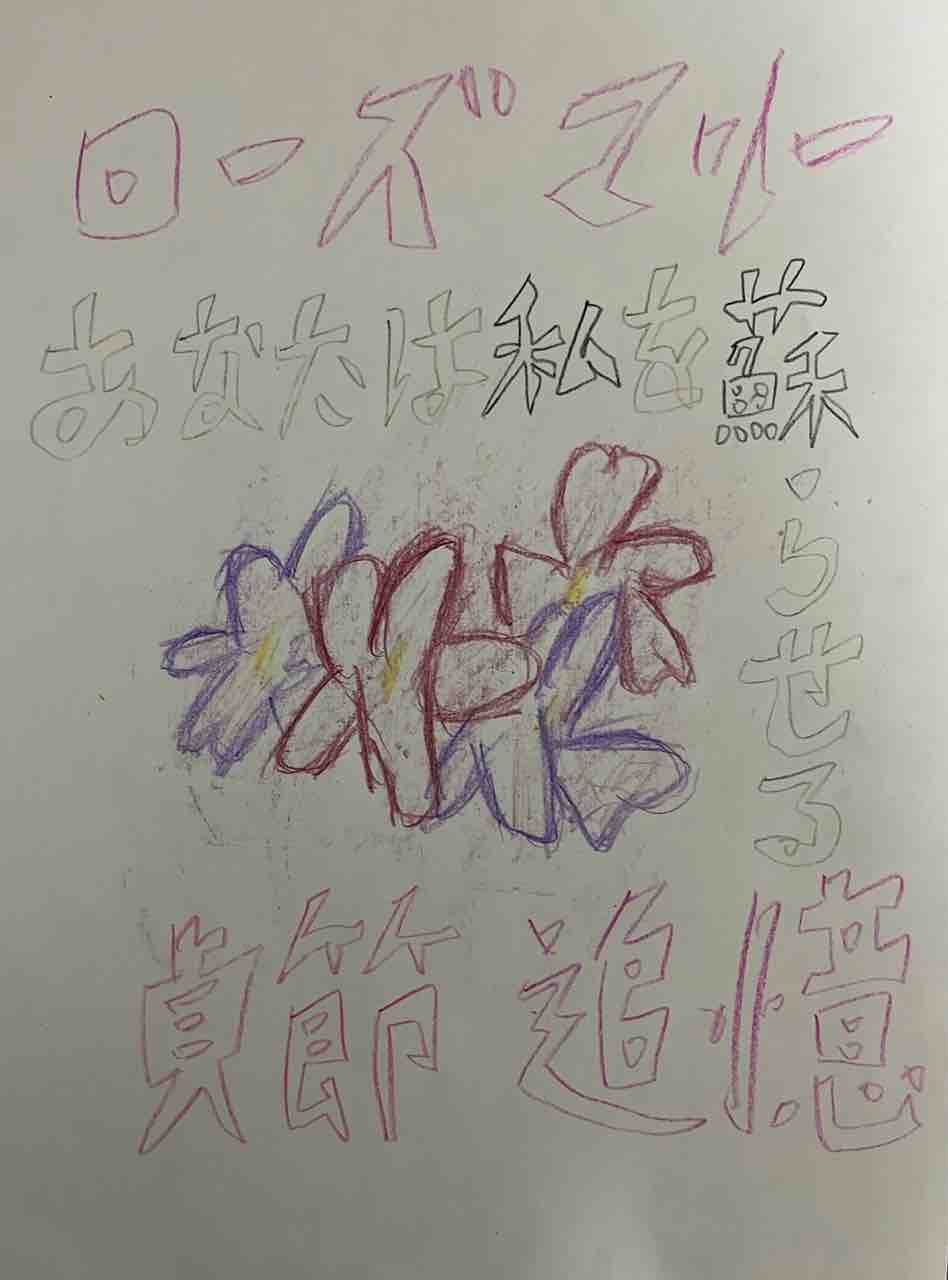 ローズマリー
あなたは私を蘇らせる
貞節 追憶